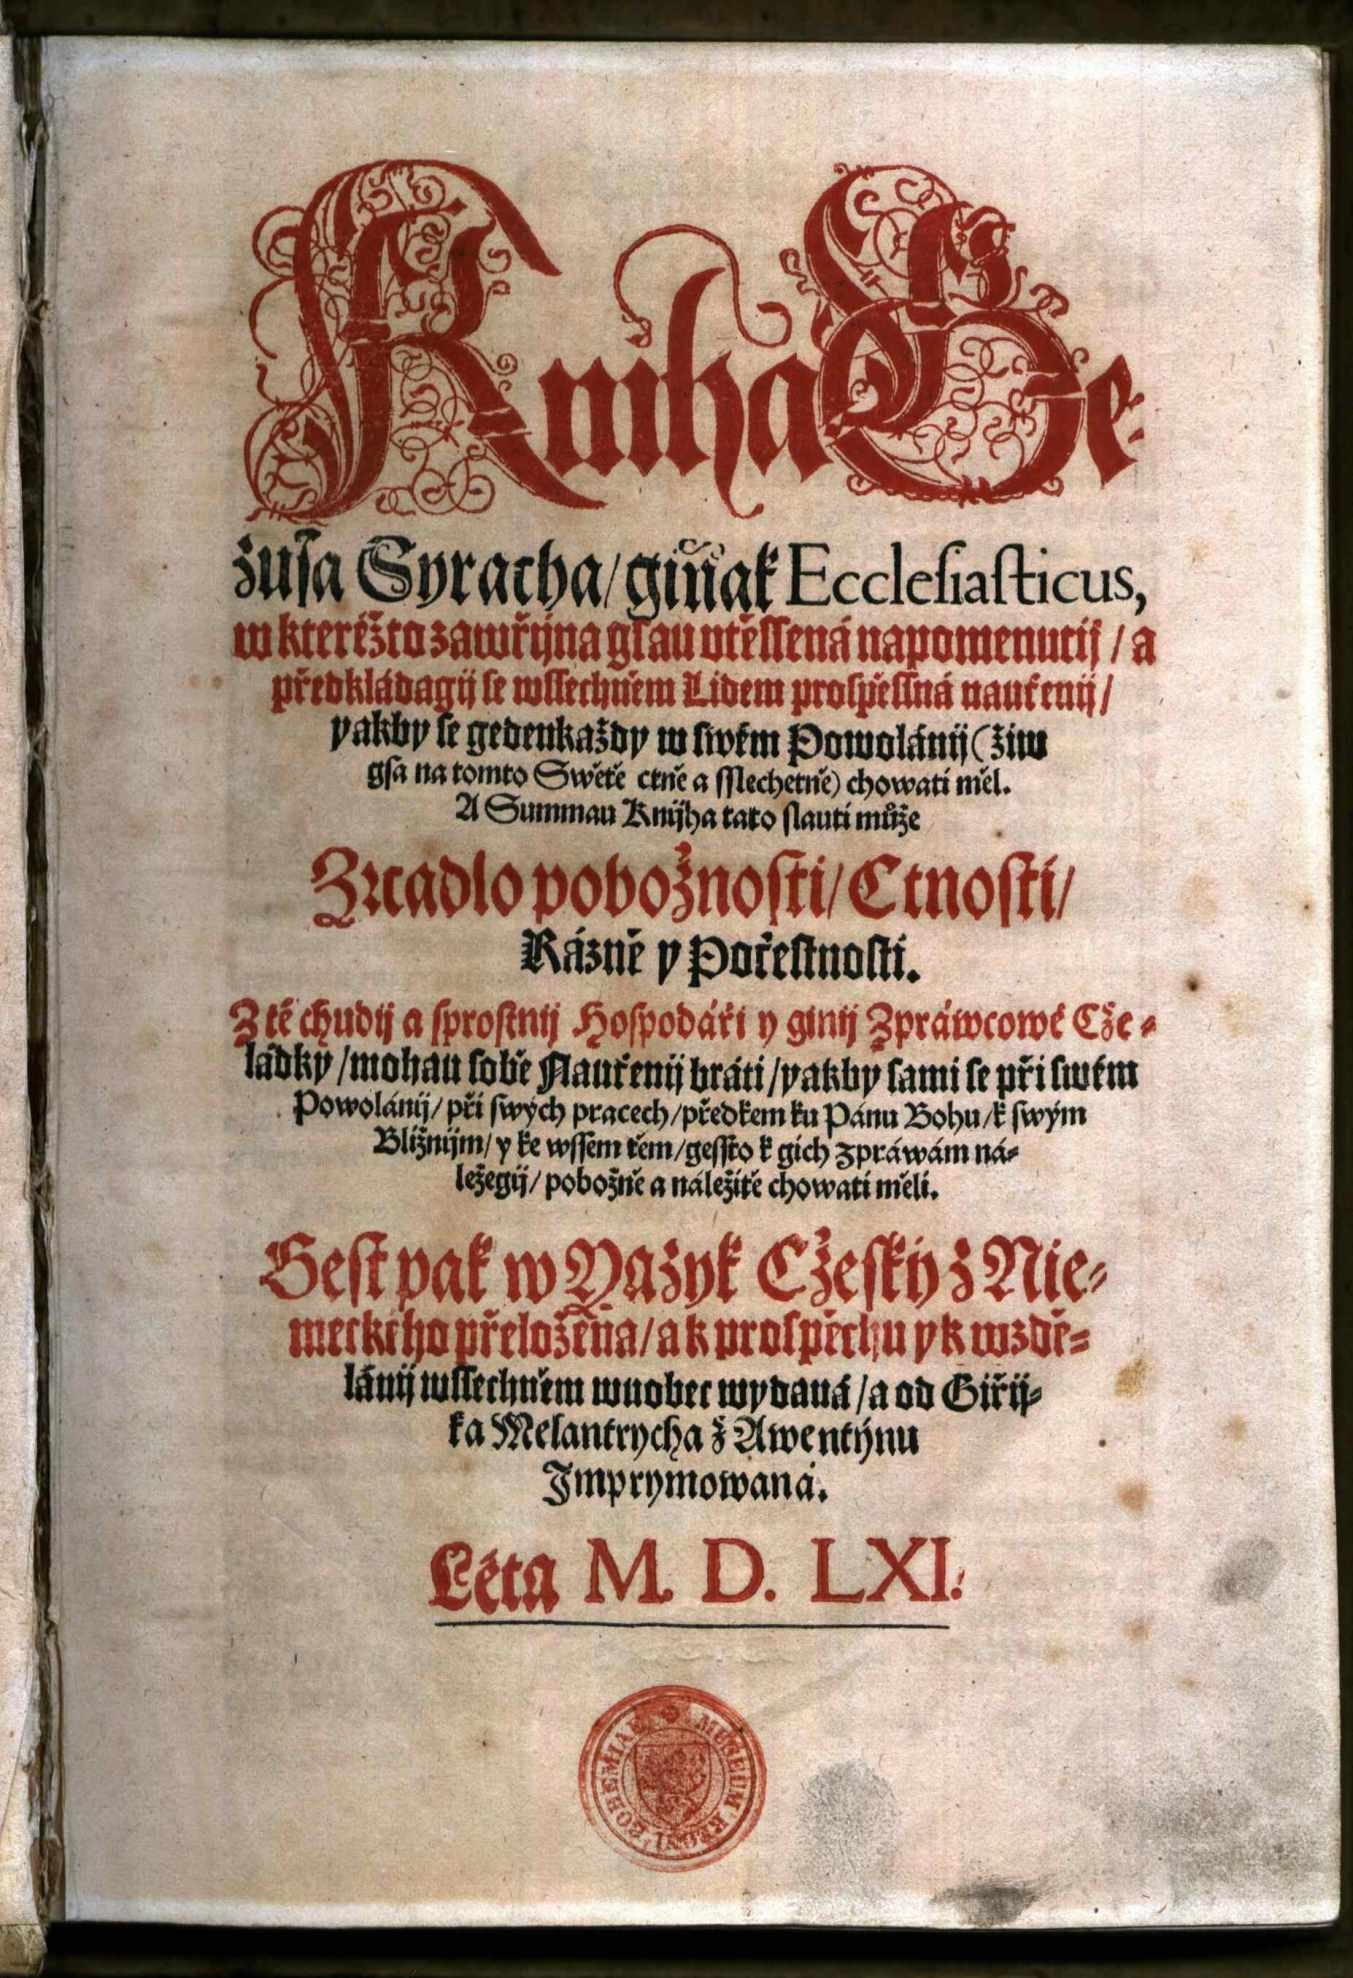 Kniha Ge-
žuſa Syracha/ ginák Eccleſiaſticus,
w kteréžto zawřijna gſau vtěſſená napomenutij / a
předkládagij ſe wſſechněm Lidem proſpěſſná naučenij/
yakby ſe gedenkaždy w ſwém Powolánij (žiw
gſa na tomto Swětě ctně a ſſlechetně) chowati měl.
A Summau Knijha tato ſlauti může
Zrcadlo pobožnoſti/ Ctnoſti/
Kázně y Počeſtnoſti.
Z té chudij a ſproſtnij Hoſpodáři y ginij Zpráwcowé Cže-
ládky /mohau ſobě Naučenij bráti /yakby ſami ſe při ſwém
Powolánij/ při ſwých pracech/ předkem ku Pánu Bohu/ k ſwým
Bližnijm/ y ke wſſem těm /geſſto k gich zpráwám ná-
ležegij/ pobožně a náležitě chowati měli.
Geſt pak w Yazyk Cžeſký z Nie-
meckého přeložená/ a k proſpěchu y k wzdě-
lánij wſſechněm wuobec wydaná /a od Giřij-
ka Melantrycha z Awentýnu
Jmprymowaná.
Léta M. D. LXI.
MUSEUM REGNI BOHEMIAE